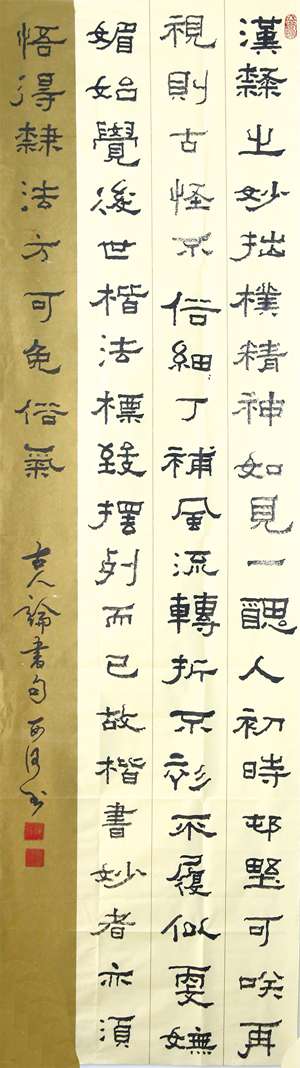 漢隸之妙拙樸精神如見一醜人初時邨野可咲再
視則古怪不俗細丁補風流轉折不衫不履似更嫵
媚始覺後世楷法標致擺列而已故楷書妙者亦須
悟得隸法方可免俗氣 古人論書句